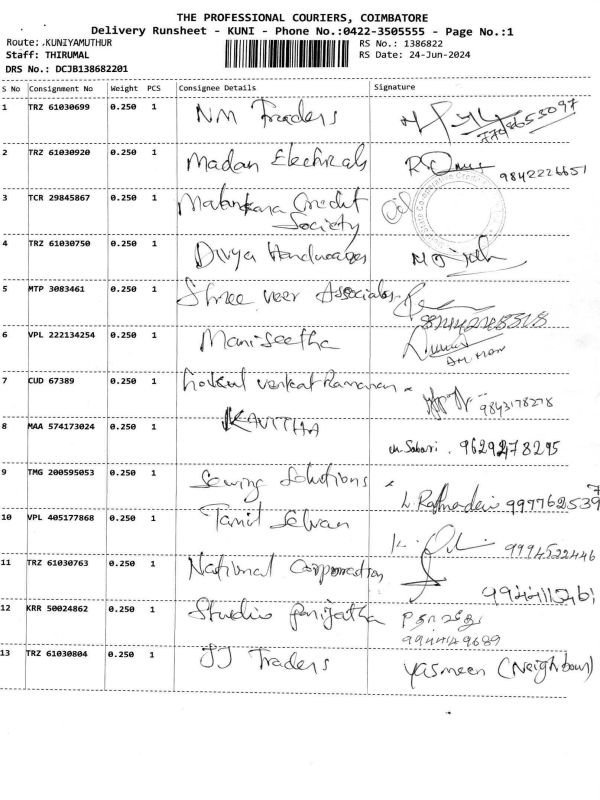 THE PROFESSIONAL COURIERS, COIMBATORE
Delivery Runsheet - KUNI - Phone No.:0422-3505555 - Page No.:1
Route: KUNIYAMUTHUR RS No.: 1386822
Staff: THIRUMAL RS Date: 24-Jun-2024
DRS No.: DCJB138682201
S No Consignment No Weight PCS Consignee Details Signature
1 TRZ 61030699 0.250 1 NM Traders
2 TRZ 61030920 0.250 1 Madan Electricals 9842226651
3 TCR 29845867 0.250 1 Malankara Credit
Society
4 TRZ 61030750 0.250 1 Divya Handwages
5 MTP 3083461 0.250 1 Shree veer Associates
6 VPL 222134254 0.250 1 Maniseetha
7 CUD 67389 0.250 1 Gokul venkat Ramanan 9843178278
8 MAA 574173024 0.250 1 KAVITHA
M. Sabari . 9629278295
9 TMG 200595053 0.250 1 Sewing Solutions
10 VPL 405177868 0.250 1 Tamil Selvan
9994522446
11 TRZ 61030763 0.250 1 National Corporation
12 KRR 50024862 0.250 1 Studio Parijatha
9944149689
13 TRZ 61030804 0.250 1 JJ Traders Yasmeen (Neighbour)